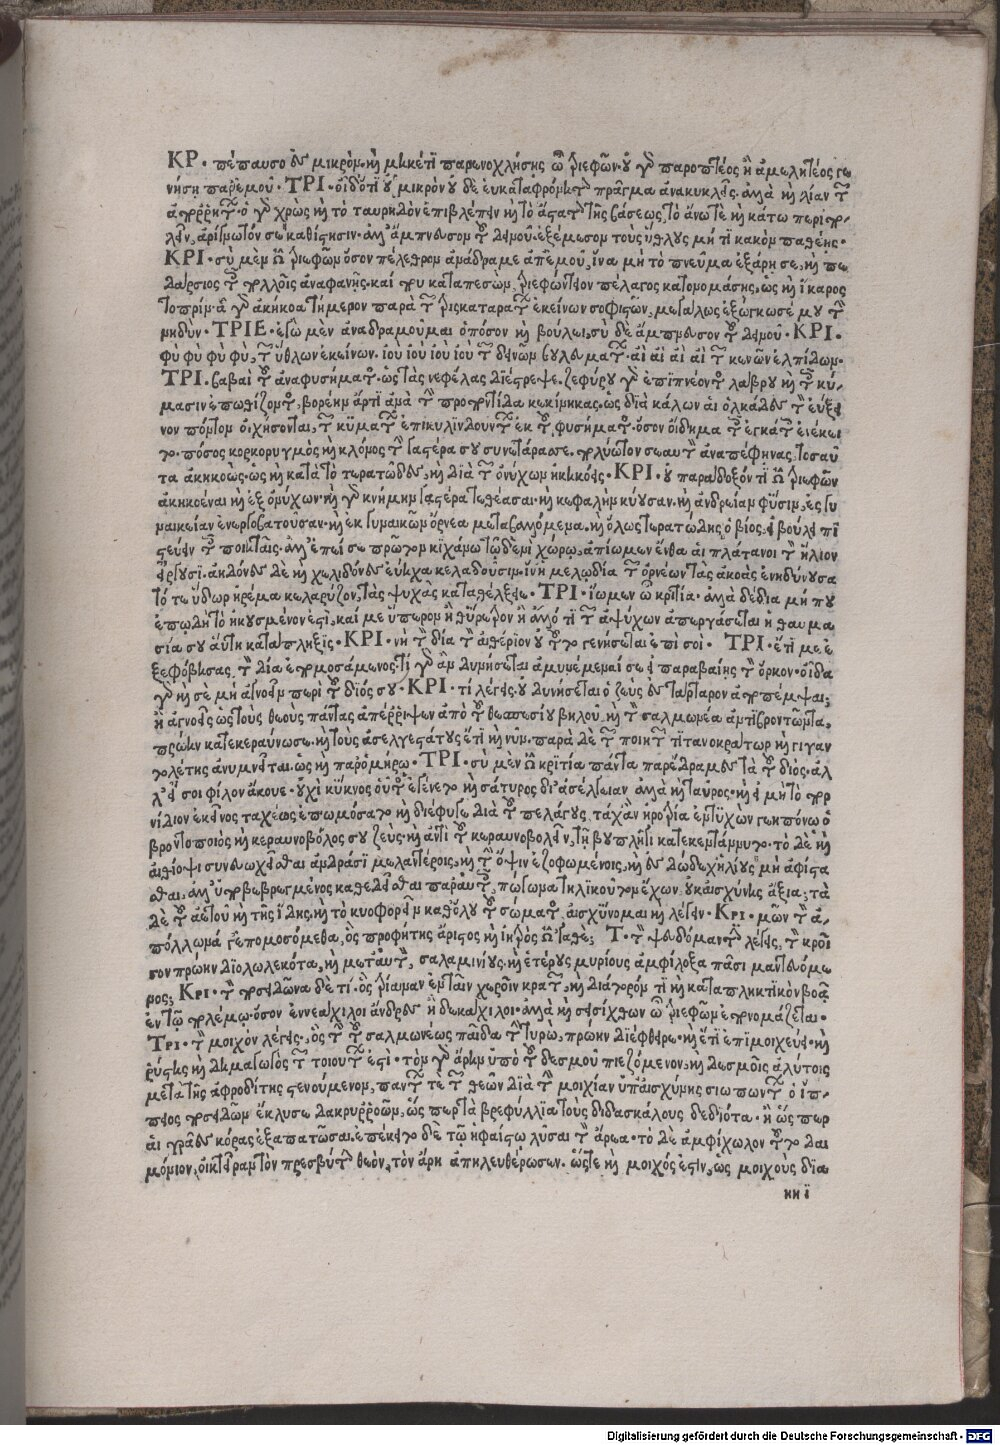 ΚΡ. πέπαυσο δὲ μικρὸν καὶ μηκέτι παρενοχλήσῃς ὦ Τριεφῶν. οὐ γὰρ παροπτέος ἢ ἀμελητέος γε
νήσῃ παρ' ἐμοῦ. ΤΡΙ. οἶδ' ὅτι οὐ μικρὸν οὐδὲ εὐκαταφρόνητον πρᾶγμα ἀνακυκλεῖς. ἀλλὰ καὶ λίαν τῶν
ἀπορρήτων. ὁ γὰρ χρὼς καὶ τὸ ταυρηδὸν ἐπιβλέπειν καὶ τὸ ἄστατον τῆς βάσεως, τὸ ἄνω τε καὶ κάτω περιπο
λεῖν, ἀρίγνωτόν σε καθίστησιν. ἀλλ' ἄμπνευσον τοῦ δεινοῦ. ἐξέμεσον τοὺς ὕθλους μή τι κακὸν παθέῃς.
ΚΡΙ. σὺ μὲν ὦ Τριεφῶν ὅσον πέλεθρον ἀνάδραμε ἀπ' ἐμοῦ, ἵνα μὴ τὸ πνεῦμα ἐξάρῃ σε, καὶ πε
δάρσιος τοῖς πολλοῖς ἀναφανῇς. καί που καταπεσὼν, Τριεφώντειον πέλαγος κατονομάσῃς, ὡς καὶ ἴκαρος
τὸ πρίν. ἃ γὰρ ἀκήκοα τήμερον παρὰ τῶν τρισκαταράτων ἐκείνων σοφιστῶν, μεγάλως ἐξώγκωσέ μου τὴν
νηδύν. ΤΡΙΕ. ἐγὼ μὲν ἀναδραμοῦμαι ὁπόσον καὶ βούλει, σὺ δὲ ἄμπνευσον τοῦ δεινοῦ. ΚΡΙ.
φῦ φῦ φῦ φῦ, τῶν ὕθλων ἐκείνων. ἰοὺ ἰοὺ ἰοὺ ἰοὺ τῶν δεινῶν βουλευμάτων. αἲ αἲ αἲ αἲ τῶν κενῶν ἐλπίδων.
ΤΡΙ. βαβαὶ τοῦ ἀναφυσήματος. ὡς τὰς νεφέλας διέστρεψε. ζεφύρου γὰρ ἐπιπνέοντος λάβρου καὶ τοῖς κύ
μασιν ἐπωθίζοντος, βορέην ἄρτι ἀνὰ τὴν προποντίδα κεκίνηκας. ὡς διὰ κάλων αἱ ὁλκάδες τὸν εὔξει
νον πόντον οἰχήσονται, τῶν κυμάτων ἐπικυλινδούντων ἐκ τοῦ φυσήματος. ὅσον οἴδημα τοῖς ἐγκάτοις ἐνέκει
το. πόσος κορκορυγμὸς καὶ κλόνος τὴν γαστέρα σου συνετάρασσε. πολύωτον σεαυτὸν ἀναπέφηνας τοσαῦ
τα ἀκηκοὼς. ὡς καὶ κατὰ τὸ τερατῶδες, καὶ διὰ τῶν ὀνύχων ἠκηκόεις. ΚΡΙ. οὐ παράδοξόν τι ὦ Τριεφῶν
ἀκηκοέναι καὶ ἐξ ὀνύχων. καὶ γὰρ κνήμην γαστέρα τεθέασαι. καὶ κεφαλὴν κύουσαν. καὶ ἀνδρείαν φύσιν, ἐς γυ
ναικείαν ἐνεργοβατοῦσαν. καὶ ἐκ γυναικῶν ὄρνεα μεταβαλλόμενα. καὶ ὅλως τερατώδης ὁ βίος, εἰ βούλει πι
στεύειν τοῖς ποιηταῖς. ἀλλ' ἐπεί σε πρῶτον κιχάνω τῷδ' ἐνὶ χώρῳ, ἀπίωμεν ἔνθα αἱ πλάτανοι τὸν ἥλιον
εἴργουσι. ἀηδόνες δὲ καὶ χελιδόνες εὔηχα κελαδοῦσιν. ἵν' ἡ μελῳδία τῶν ὀρνέων τὰς ἀκοὰς ἐνηδύνουσα
τό τε ὕδωρ ἠρέμα κελαρύζον, τὰς ψυχὰς καταθέλξειε. ΤΡΙ. ἴωμεν ὦ κριτία. ἀλλὰ δέδια μή που
ἐπῳδὴ τὸ ἠκουσμένον ἐστὶ, καί με ὕπερον ἢ θύρετρον ἢ ἄλλό τι τῶν ἀψύχων ἀπεργάσεται ἡ θαυμα
σία σου αὕτη κατάπληξις. ΚΡΙ. νὴ τὸν δία τὸν αἰθέριον οὐ τοῦτο γενήσεται ἐπὶ σοί. ΤΡΙ. ἔτι με ἐ
ξεφόβησας, τὸν δία ἐπομοσάμενος. τί γὰρ ἂν δυνήσεται ἀμυνέμεναί σε εἰ παραβαίης τὸν ὅρκον. οἶδα
γὰρ καὶ σὲ μὴ ἀγνοεῖν περὶ τοῦ διός σου. ΚΡΙ. τί λέγεις. οὐ δυνήσεται ὁ ζεὺς ἐς τάρταρον ἀποπέμψαι;
ἢ ἀγνοεῖς ὡς τοὺς θεοὺς πάντας ἀπέρριψεν ἀπὸ τοῦ θεσπεσίου βηλοῦ, καὶ τὸν σαλμωνέα ἀντιβροντῶντα,
πρώην κατεκεραύνωσε. καὶ τοὺς ἀσελγεστάτους ἔτι καὶ νῦν. παρὰ δὲ τῶν ποιητῶν τιτανοκράτωρ καὶ γιγαν
τολέτης ἀνυμνεῖται. ὡς καὶ παρ' ὁμήρῳ. ΤΡΙ. σὺ μὲν ὦ κριτία πάντα παρέδραμες τὰ τοῦ διός. ἀλ
λ' εἴ σοι φίλον ἄκουε. οὐχὶ κύκνος οὗτος ἐγένετο καὶ σάτυρος δι' ἀσέλγειαν ἀλλὰ καὶ ταῦρος. καὶ εἰ μὴ τὸ πορ
νίδιον ἐκεῖνος ταχέως ἐπωμόσατο καὶ διέφυγε διὰ τοῦ πελάγους, τάχ' ἂν ἠροτρία ἐντυχὼν γεηπόνῳ ὁ
βροντοποιὸς καὶ κεραυνοβόλος σου ζεύς. καὶ ἀντὶ τοῦ κεραυνοβολεῖν, τῇ βουπλῆγι κατεκεντάννυτο. τὸ δὲ καὶ
αἰθίοψι συνευωχεῖσθαι ἀνδράσι μελαντέροις, καὶ τὴν ὄψιν ἐζοφωμένοις, καὶ ἐς δώδεχ' ἡλίους μὴ ἀφίστα
σθαι, ἀλλ' ὑποβεβρεγμένος καθέζεσθαι παρ' αὐτοῖς, πώγωνα τηλικοῦτον ἔχων, οὐκ αἰσχύνης ἄξια; τὰ
δὲ τοῦ ἀετοῦ καὶ τῆς ἴδης, καὶ τὸ κυοφορεῖν καθ' ὅλου τοῦ σώματος, αἰσχύνομαι καὶ λέγειν. ΚΡΙ. μῶν τὸν ἀ
πόλλωνά γ' ἐπομοσόμεθα, ὃς προφήτης ἄριστος καὶ ἰητρὸς ὦγαθέ; Τ. τὸν ψευδόμαντιν λέγεις, τὸν κροῖ
σον πρώην διολωλεκότα, καὶ μετ' αὐτὸν, σαλαμινίους, καὶ ἑτέρους μυρίους ἀμφίλοξα πᾶσι μαντευόμε
νος; ΚΡΙ. τὸν ποσειδῶνα δὲ τί. ὃς τρίαιναν ἐν ταῖν χεροῖν κρατῶν, καὶ διάτορόν τι καὶ καταπληκτικὸν βοᾷ
ἐν τῷ πολέμῳ. ὅσον ἐννεάχιλοι ἄνδρες ἢ δεκάχιλοι. ἀλλὰ καὶ σεισίχθων ὦ Τριεφῶν ἐπονομάζεται.
ΤΡΙ. τὸν μοιχὸν λέγεις. ὃς τὴν τοῦ σαλμωνέως παῖδα τὴν τυρὼ, πρώην διέφθειρε. καὶ ἔτι ἐπιμοιχεύει. καὶ
ῥύστης καὶ δημαγωγὸς τῶν τοιούτων ἐστί. τὸν γὰρ ἄρην ὑπὸ τοῦ δεσμοῦ πιεζόμενον, καὶ δεσμοῖς ἀλύτοις
μετὰ τῆς ἀφροδίτης γενούμενον, πάντων τε τῶν θεῶν διὰ τὴν μοιχίαν ὑπ' αἰσχύνης σιωπώντων ὁ ἵπ
πειος ποσειδῶν ἔκλυσε δακρυρροῶν, ὥσπερ τὰ βρεφύλλια τοὺς διδασκάλους δεδιότα. ἢ ὥσπερ
αἱ γρᾶες κόρας ἐξαπατῶσαι. ἐπέκειτο δὲ τῷ ἡφαίστῳ λῦσαι τὸν ἄρεα. τὸ δὲ ἀμφίχωλον τοῦτο δαι
μόνιον, οἰκτεῖραν τὸν πρεσβύτην θεὸν, τὸν ἄρη ἀπηλευθέρωσεν. ὥστε καὶ μοιχός ἐστιν, ὡς μοιχοὺς δια
ηη ϊ
Digitalisierung gefördert durch die Deutsche Forschungsgemeinschaft - DFG